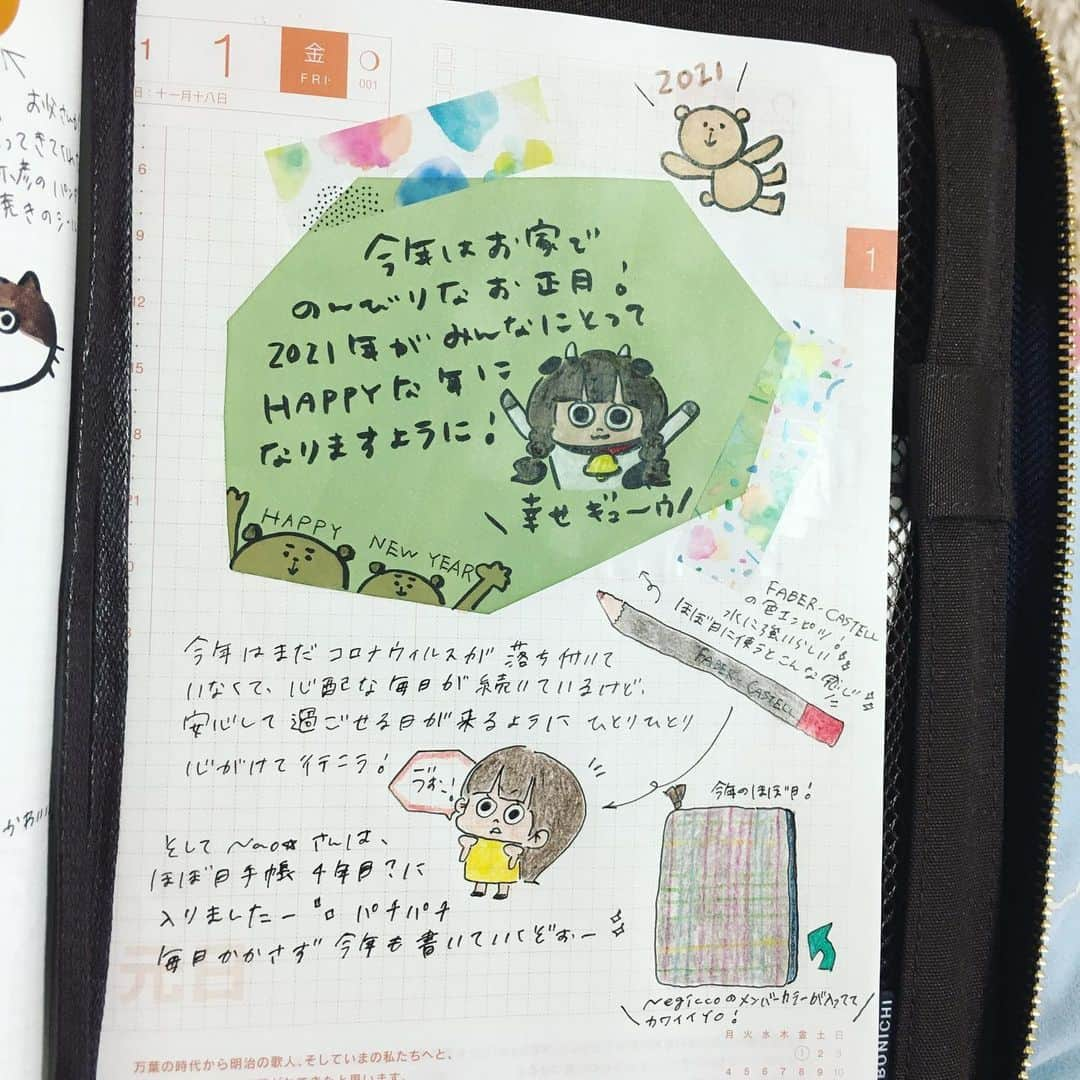 1
1
金
FRI
001
日：十一月十八日
2021
お父さん
ってきてくれ
6
9
12
15
18
21
1
今年はお家で
のんびりなお正月！
2021年がみんなにとって
HAPPYな年に
なりますように！
幸せギューウ
HAPPY NEW YEAR
FABER-CASTELL
の色エンピツ！
水に強いらしい
ほぼ日に使うとこんな感じ
FABER-CASTELL
今年はまだコロナウィルスが落ち付いて
いなくて、心配な毎日が続いているけど、
安心して過ごせる日が来るようにひとりひとり
心がけて行こう！
うむー！
今年のほぼ日！
かわいい
そしてNao☆さんは、
ほぼ日手帳4年目？に
入りましたー！！パチパチ
毎日かかさず今年も書いていくぞぉー
Negiccoのメンバーカラーが入ってて
カワイイYO！
元日
BONICHI
月 火 水 木 金 土 日
1 2 3
4 5 6 7 8 9 10
万葉の時代から明治の歌人、そしていまの私たちへと、